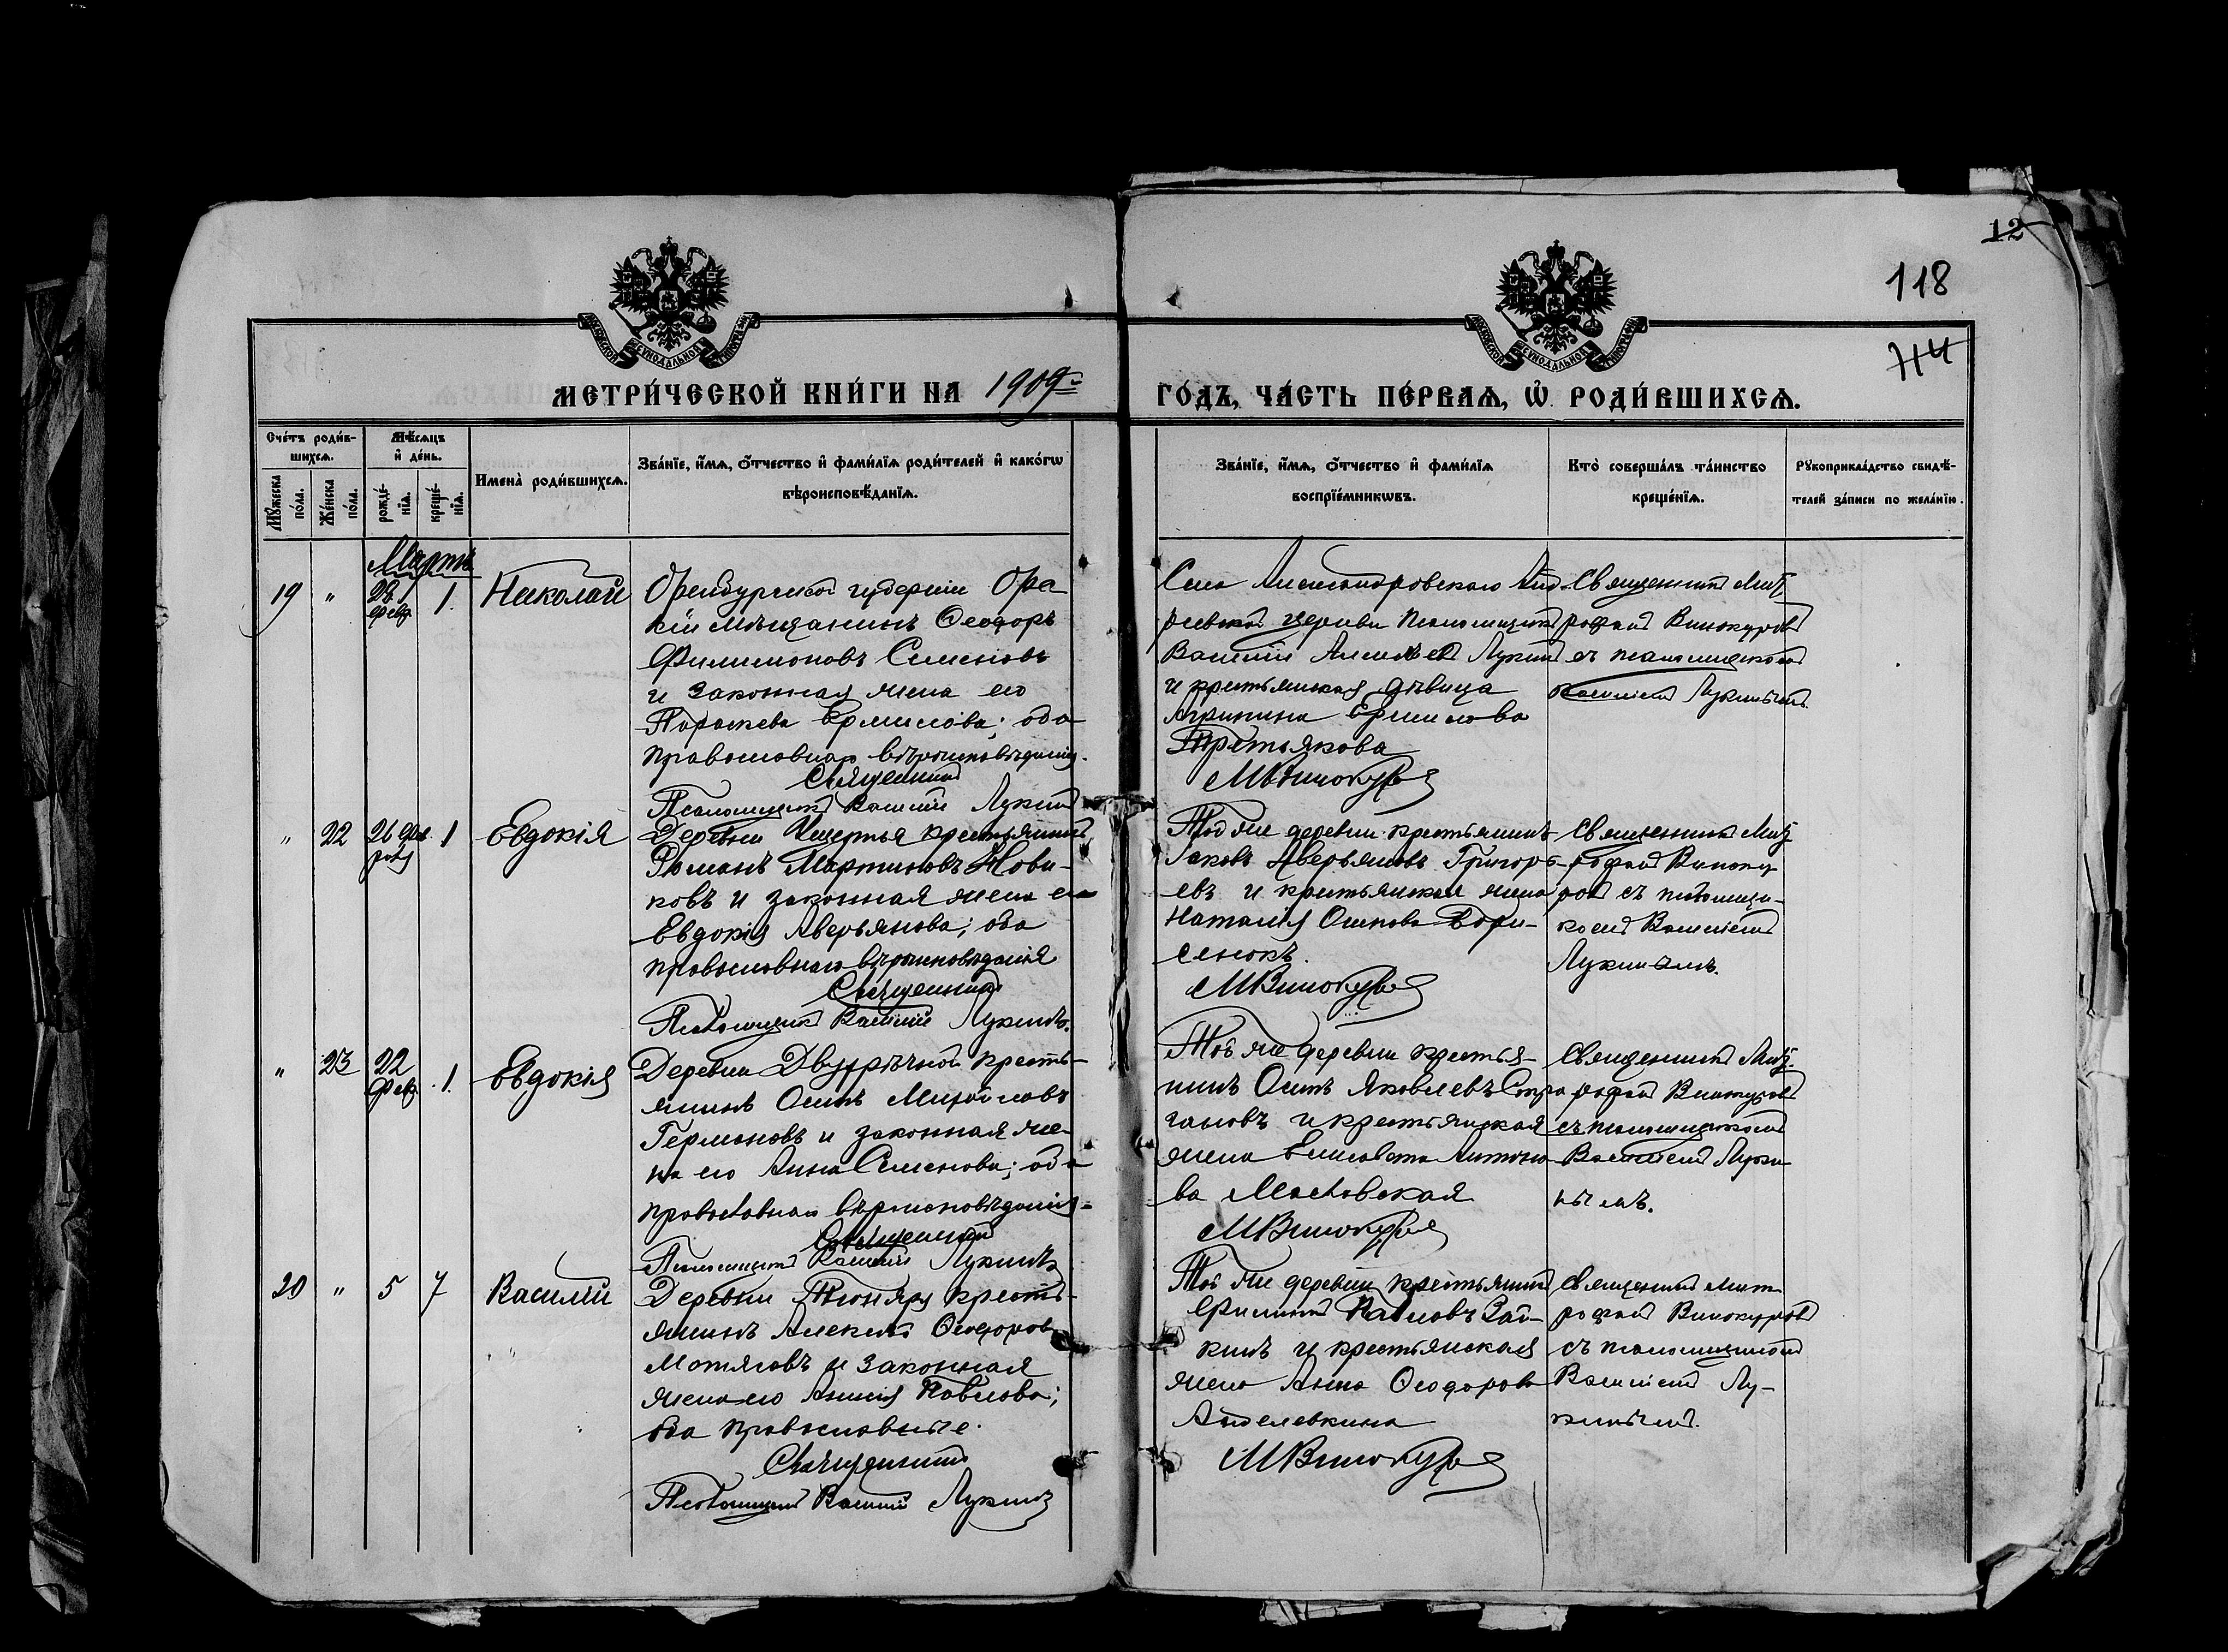 12
118
МОСКОВСКОЙ СУНОДАЛЬНОЙ ТИПОГРАФІИ
МОСКОВСКОЙ СУНОДАЛЬНОЙ ТИПОГРАФІИ
МЕТРИ́ЧЕСКОЙ КНИ́ГИ НА 1909 г.
ГО́ДЪ, ЧА́СТЬ ПЕ́РВАѦ, Ѡ РОДИ́ВШИХСѦ.
Сче́тъ роди́в-
шихсѧ.
Мѣ́сѧцъ
и де́нь.
Мꙋ́жеска
по́ла.
Же́нска
по́ла.
рожде́-
нїѧ.
креще́-
нїѧ.
Имена̀ роди́вшихсѧ.
Зва́нїе, и́мѧ, о́тчество и фами́лїѧ роди́телей и како́гѡ
вѣроисповѣ́данїѧ.
Зва́нїе, и́мѧ, о́тчество и фами́лїѧ
воспрїе́мникѡвъ.
Кто̀ соверша́лъ та́инство
креще́нїѧ.
Рꙋкоприкла́дство свидѣ́-
телей за́писи по жела́нїю.
Мартъ
19 " 28 февр. 1. Николай
Оренбургской губерніи Ор
мѣщанинъ Ѳеодоръ
Филимоновъ Семеновъ
и законная жена его
Параскева Ермилова; оба
православнаго вѣроисповѣданія.
Священникъ
Псаломщикъ Василій Лукинъ
Села Александровскаго
церкви псаломщикъ
Василій Алексѣевъ Лукинъ
и крестьянская дѣвица
Агрипина Ермилова
Третьякова
МВинокуровъ
Священникъ Мит-
рофанъ Винокуровъ
съ псаломщикомъ
Василіемъ Лукинымъ.
" 22 26 фев. 1 Евдокія
Деревни крестьянинъ
Романъ Мартиновъ Нови-
ковъ и законная жена его
Евдокія Аверьянова; оба
православнаго вѣроисповѣданія
Священникъ
Псаломщикъ Василій Лукинъ.
Той же деревни крестьянинъ
Іаковъ Аверьяновъ Григорь-
евъ и крестьянская жена
Наталія Осипова Бори-
сенокъ.
МВинокуровъ
Священникъ Мит-
рофанъ Виноку-
ровъ съ псаломщи-
комъ Василіемъ
Лукинымъ.
" 23 22 февр. 1. Евдокія
Деревни Двурѣчной кресть-
янинъ Осипъ Михайловъ
Германовъ и законная же-
на его Анна Семенова; оба
православнаго вѣроисповѣданія.
Священникъ
Псаломщикъ Василій Лукинъ
Той же деревни крестья-
нинъ Осипъ Яковлевъ Стра-
гановъ и крестьянская
жена Елисавета Антоно-
ва Мостовская
МВинокуровъ
Священникъ Мит-
рофанъ Винокуровъ
съ псаломщикомъ
Василіемъ Луки-
нымъ.
20 " 5 7 Василій
Деревни Тюняръ кресть-
янинъ Алексѣй Ѳеодоровъ
Мотяговъ и законная
жена его Анисія Павлова;
оба православные.
Священникъ
Псаломщикъ Василій Лукинъ
Той же деревни крестьянинъ
Филиппъ Павловъ Зай-
кинъ и крестьянская
жена Анна Ѳеодорова
МВинокуровъ
Священникъ Мит-
рофанъ Винокуровъ
съ псаломщикомъ
Василіемъ Лу-
кинымъ.